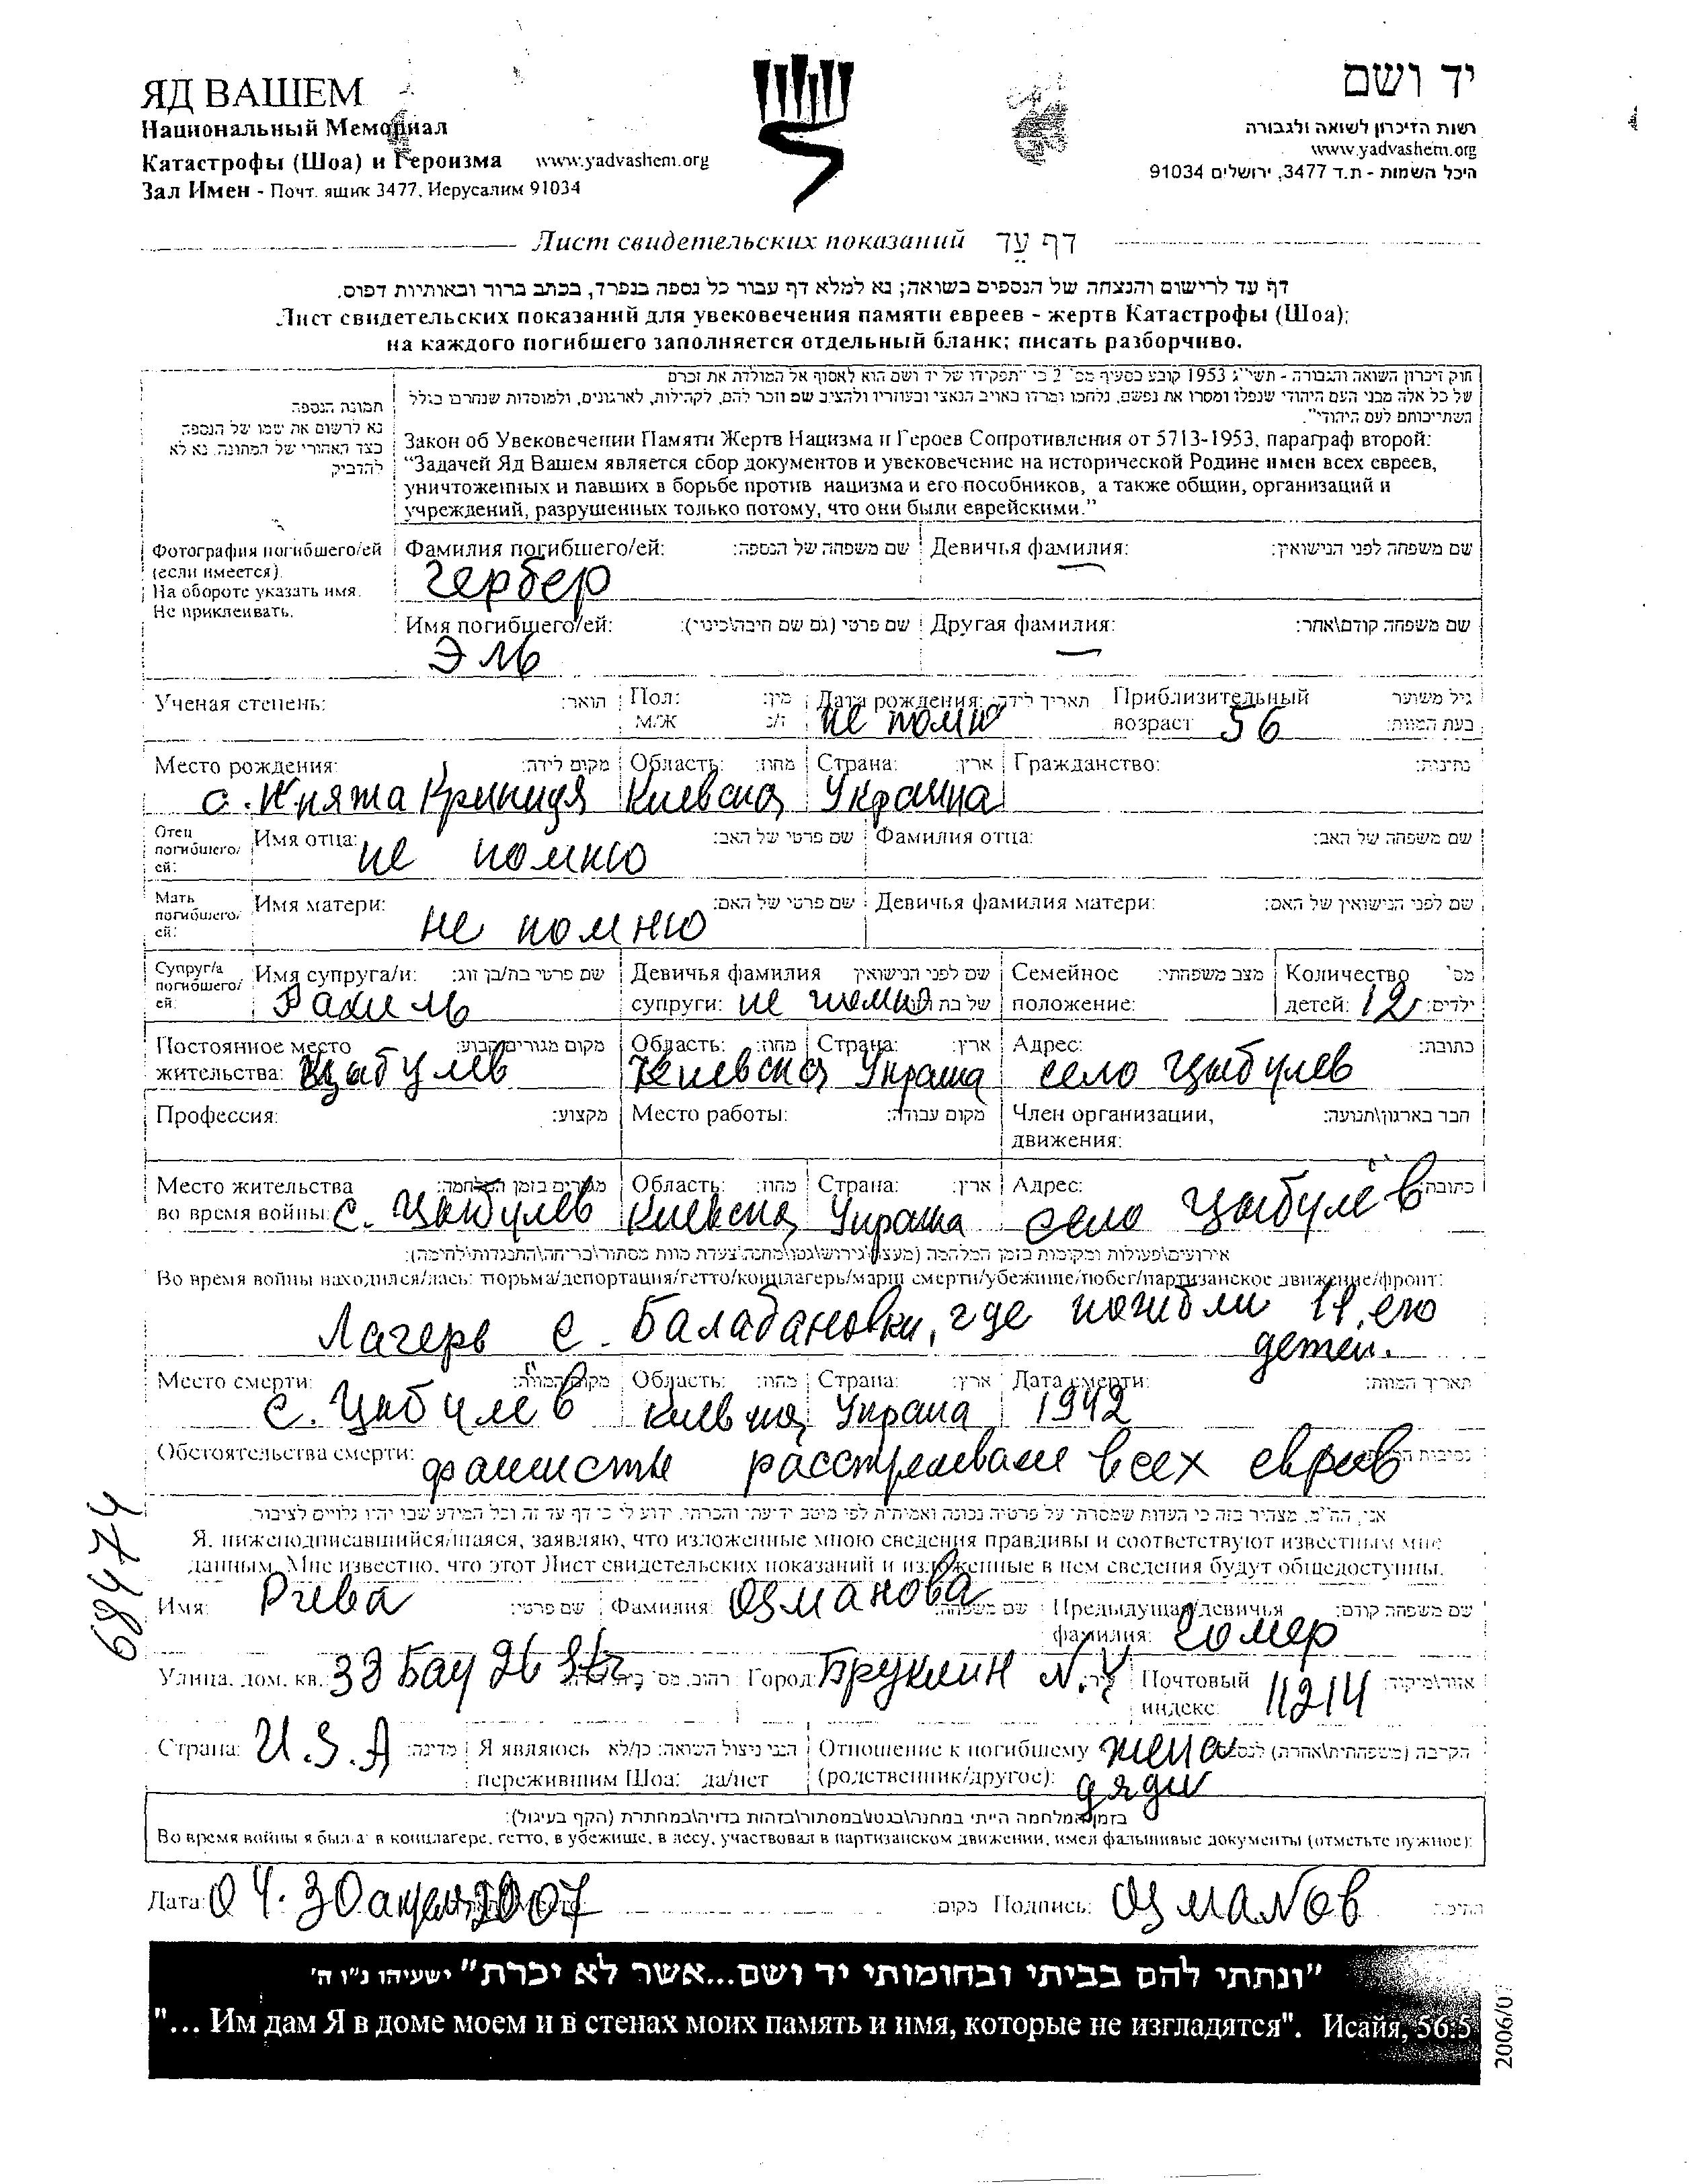 ЯД ВАШЕМ
Национальный Мемориал
Катастрофы (Шоа) и Героизма www.yadvashem.org
Зал Имен - Почт. ящик 3477, Иерусалим 91034
יד ושם
רשות הזיכרון לשואה ולגבורה
www.yadvashem.org
היכל השמות - ת.ד 3477, ירושלים 91034
Лист свидетельских показаний דף עֵד
דף עד לרישום והנצחה של הנספים בשואה; נא למלא דף עבור כל נספה בנפרד, בכתב ברור ובאותיות דפוס.
Лист свидетельских показаний для увековечения памяти евреев - жертв Катастрофы (Шоа);
на каждого погибшего заполняется отдельный бланк; писать разборчиво.
חוק זיכרון השואה והגבורה - תשי"ג 1953 קובע בסעיף מס' 2 כי "תפקידו של יד ושם הוא לאסוף אל המולדת את זכרם
של כל אלה מבני העם היהודי שנפלו ומסרו את נפשם, נלחמו ומרדו באויב הנאצי ובעוזריו ולהציב שם וזכר להם, לקהילות, לארגונים, ולמוסדות שנחרבו בגלל
השתייכותם לעם היהודי".
Закон об Увековечении Памяти Жертв Нацизма и Героев Сопротивления от 5713-1953, параграф второй:
"Задачей Яд Вашем является сбор документов и увековечение на исторической Родине имен всех евреев,
уничтоженных и павших в борьбе против нацизма и его пособников, а также общин, организаций и
учреждений, разрушенных только потому, что они были еврейскими."
תמונת הנספה
נא לרשום את שמו של הנספה
בצד האחורי של התמונה. נא לא
להדביק
Фотография погибшего/ей
(если имеется).
На обороте указать имя.
Не приклеивать.
Фамилия погибшего/ей: שם משפחה של הנספה: Девичья фамилия: שם משפחה לפני הנישואין:
Гербер —
Имя погибшего/ей: שם פרטי (גם שם חיבה\כינוי): Другая фамилия: שם משפחה קודם\אחר:
Эль —
Ученая степень: תואר: Пол: מין: Дата рождения: תאריך לידה: Приблизительный גיל משוער
М/Ж ז/נ не помню возраст 56 בעת המוות:
Место рождения: מקום לידה: Область: מחוז: Страна: ארץ: Гражданство: נתינות:
с. Княжа Криница Киевская Украина
Отец погибшего/ей: Имя отца: не помню שם פרטי של האב: Фамилия отца: שם משפחה של האב:
Мать погибшего/ей: Имя матери: не помню שם פרטי של האם: Девичья фамилия матери: שם לפני הנישואין של האם:
Супруг/а погибшего/ей: Имя супруга/и: שם פרטי בת/בן זוג: Девичья фамилия שם לפני הנישואין Семейное מצב משפחתי: Количество מס'
Рахиль супруги: не помню של בת положение: детей: 12 ילדים:
Постоянное место מקום מגורים קבוע: Область: מחוז: Страна: ארץ: Адрес: כתובת:
жительства: Цыбулев Киевская Украина село Цыбулев
Профессия: מקצוע: Место работы: מקום עבודה: Член организации, חבר בארגון\תנועה:
движения:
Место жительства מגורים בזמן המלחמה: Область: מחוז: Страна: ארץ: Адрес: כתובת:
во время войны: с. Цыбулев Киевская Украина село Цыбулёв
אירועים\פעולות ומקומות בזמן המלחמה (מעצר\גירוש\גטו\מחנה\צעדת מוות מסתור\בריחה\התנגדות\לחימה):
Во время войны находился/лась: тюрьма/депортация/гетто/концлагерь/марш смерти/убежище/побег/партизанское движение/фронт:
Лагерь с. Балабановки, где погибли 11 его
детей.
Место смерти: מקום המוות: Область: מחוז: Страна: ארץ: Дата смерти: תאריך המוות:
с. Цыбулёв Киевская Украина 1942
Обстоятельства смерти: фашисты расстреливали всех евреев נסיבות
אני, הח"מ, מצהיר בזה כי העדות שמסרתי על פרטיה נכונה ואמיתית לפי מיטב ידיעתי והכרתי. ידוע לי כי דף עד זה וכל המידע שבו יהיו גלויים לציבור.
Я, нижеподписавшийся/шаяся, заявляю, что изложенные мною сведения правдивы и соответствуют известным мне
данным. Мне известно, что этот Лист свидетельских показаний и изложенные в нем сведения будут общедоступны.
Имя: Рива שם פרטי: Фамилия: Османова שם משפחה: Предыдущая/девичья שם משפחה קודם:
фамилия: Гомер
Улица, дом, кв.: 33 Бау 26 רחוב, מס' Город: Бруклин N.Y עיר: Почтовый אזור\מיקוד:
индекс: 11214
Страна: U.S.A מדינה: Я являюсь הנני ניצול השואה: כן/לא Отношение к погибшему жена הקרבה (משפחתית\אחרת)
пережившим Шоа: да/нет (родственник/другое): дяди
בזמן המלחמה הייתי במחנה\בגטו\במסתור\בזהות בדויה\במחתרת (הקף בעיגול):
Во время войны я был/а: в концлагере, гетто, в убежище, в лесу, участвовал в партизанском движении, имел фальшивые документы (отметьте нужное):
Дата: 04. 30 апреля 2007 מקום: Подпись: Османов חתימה:
"ונתתי להם בביתי ובחומותי יד ושם...אשר לא יכרת" ישעיהו נ"ו ה'
"... Им дам Я в доме моем и в стенах моих память и имя, которые не изгладятся". Исайя, 56:5
68474
2006/07